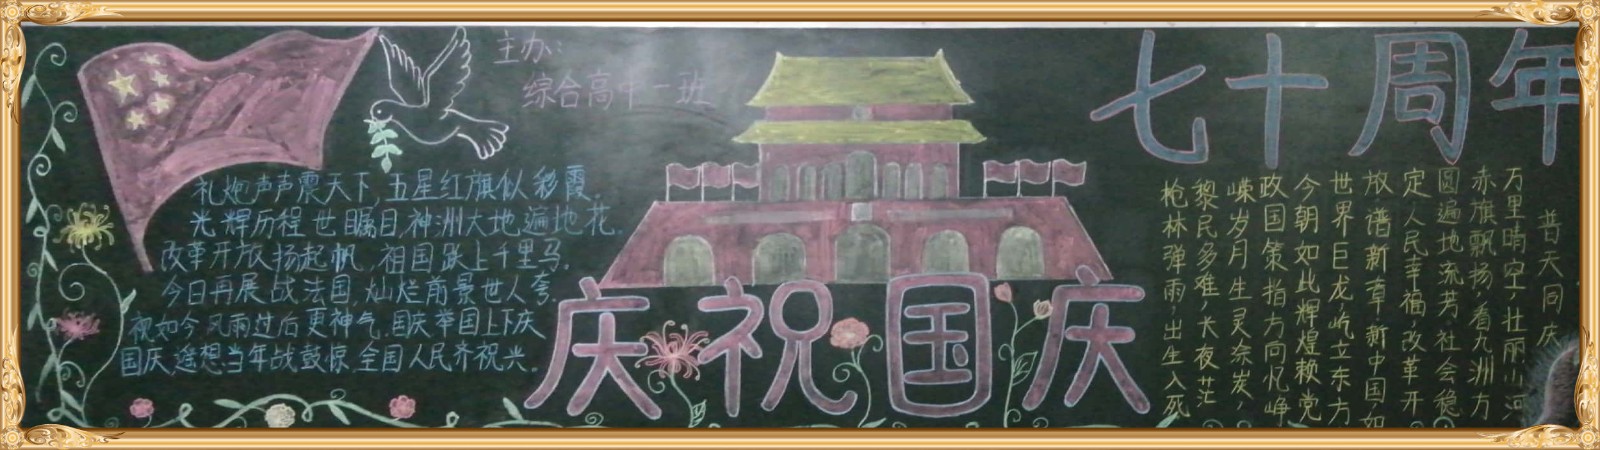 主办:
综合高中一班
七十周年
礼炮声声震天下,五星红旗似彩霞。
光辉历程世瞩目,神洲大地遍地花。
改革开放扬起帆,祖国跃上千里马。
今日再展战法国,灿烂前景世人夸。
祝如今风雨过后更神气,国庆举国上下庆
国庆遥想当年战鼓惊,全国人民齐祝兴。
庆祝国庆
普天同庆
万里晴空,壮丽山河
赤旗飘扬,看九洲方
圆遍地流芳,社会稳
定人民幸福,改革开
放谱新章,新中国如
世界巨龙,屹立东方
今朝如此辉煌赖党
政国策指方向忆峥
嵘岁月生灵涂炭,
黎民多难,长夜茫
枪林弹雨,出生入死